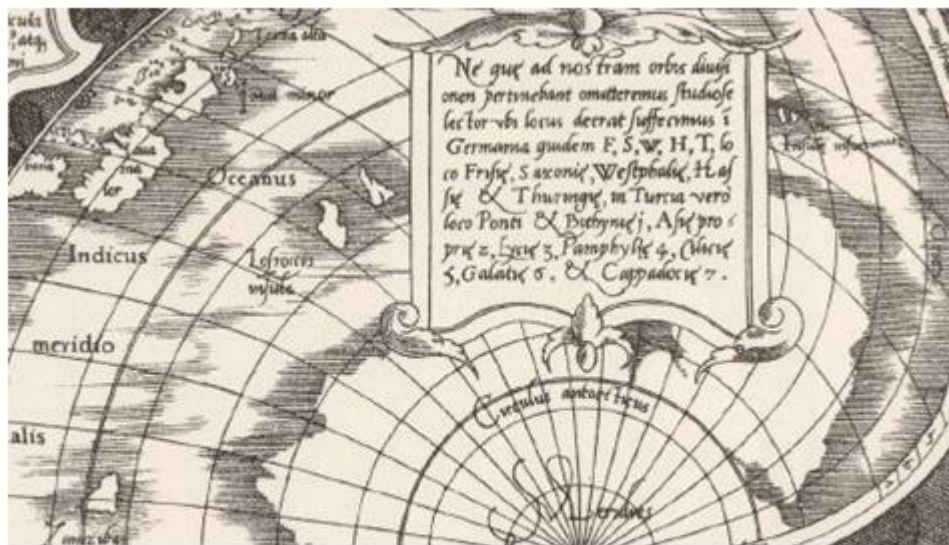 Iaua minor
Oceanus
Indicus
meridio
alis
Ne quę ad nostram orbis diuisi
onem pertinebant omitteremus studiose
lector vbi locus deerat suffecimus i
Germania quidem F, S, W, H, T, lo
co Frisię, Saxonię, Westphalię, Has
się & Thuringię, in Turcia vero
loco Ponti & Bithynię j, Asię pro
prię 2, Lycię 3, Pamphylię 4, Cilicię
5, Galatię 6. & Cappadocię 7.
Circulus antarcticus